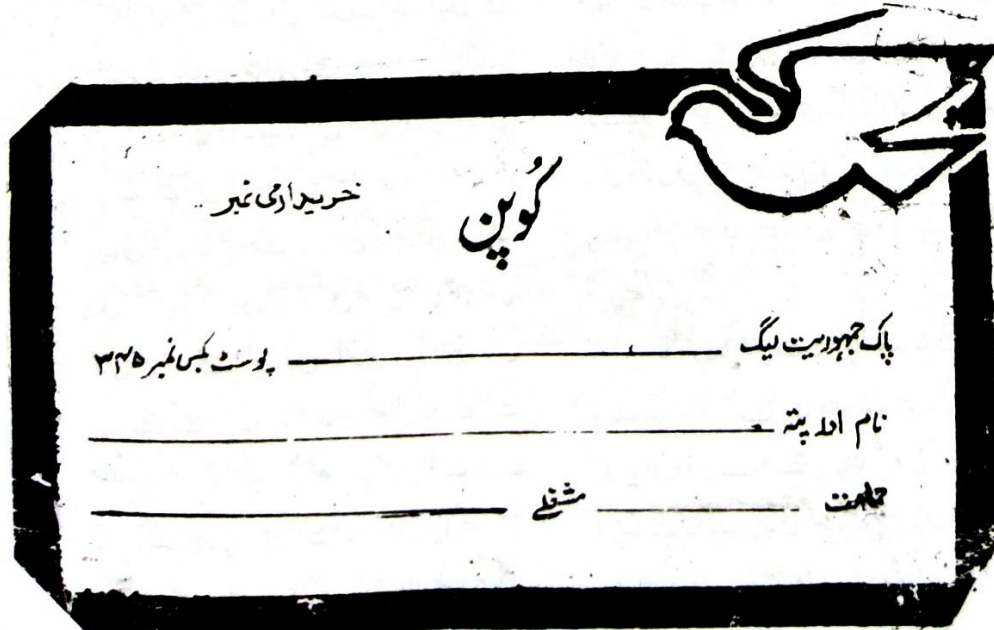 کُوپن خریداری نمبر
پاک جمہوریت لیگ ــــــــــ پوسٹ بکس نمبر ۳۴۵
نام اور پتہ ــــــــــ
جماعت ــــــــــ مشغلے ــــــــــ